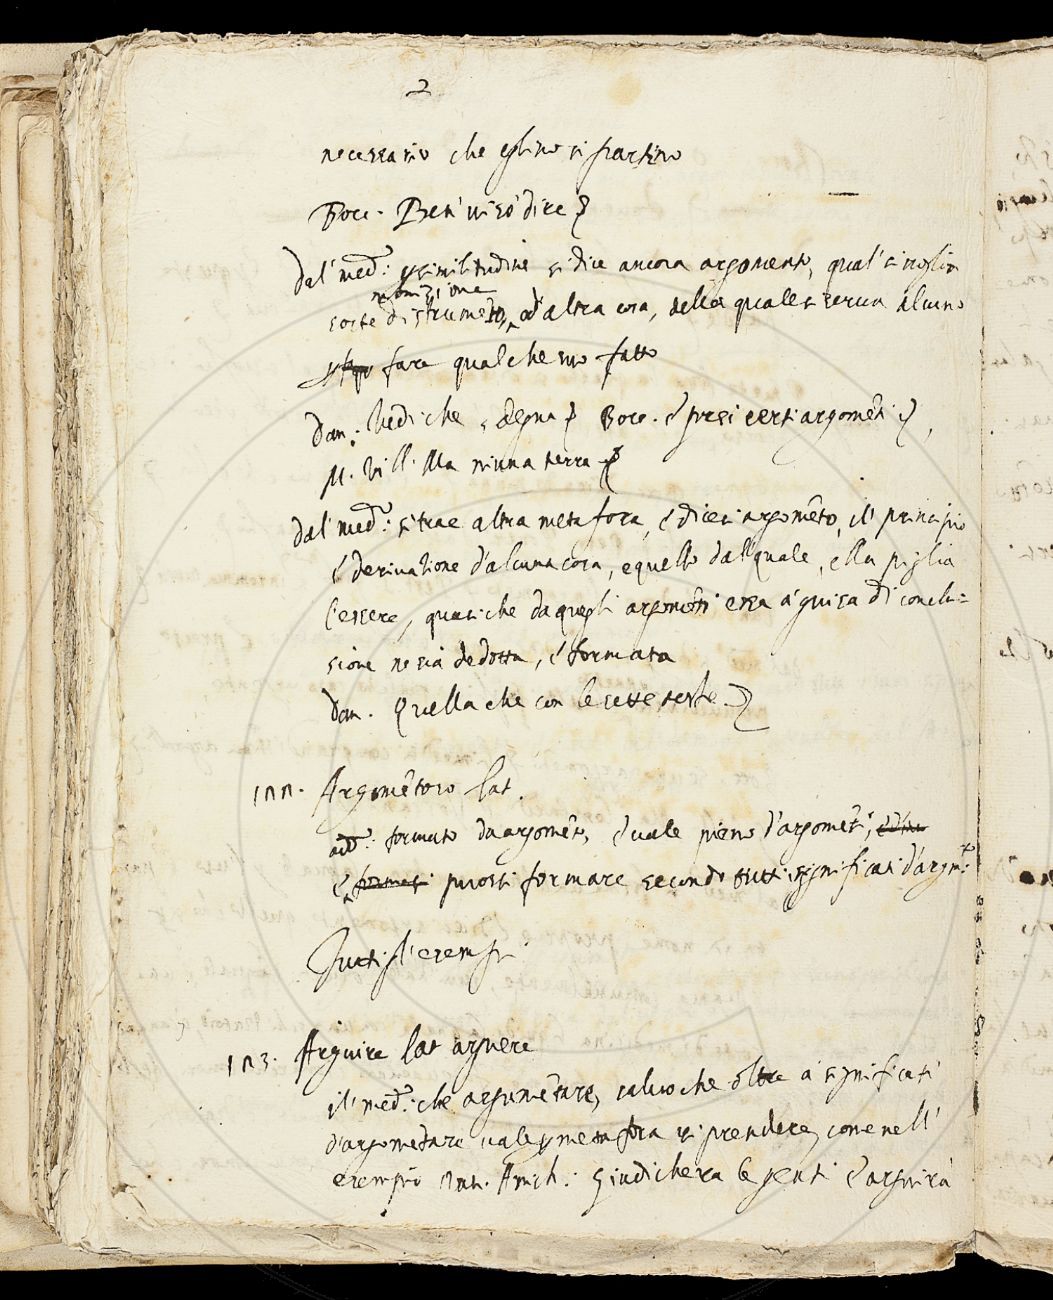 2
necessario che eglino si partino
Bocc. Ben' uiso' dire
Dal' med.º similitudine si dice ancora argomento, qual' si uoglia
inuenzione
sorte d'istrumēto, ò d'altra cosa, della quale si serua alcuno
fare qualche suo fatto
Dan. Vedi che sdegna Bocc. è presi certi argomēti è,
M. Vill. Ma niuna terra
Dal' med.º si trae altra metafora, è dicesi argomēto, il' principio
è deriuatione d'alcuna cosa, e quello dal' quale, ella piglia
l'essere, quasi che da quegli argomēti essa à guisa di conclu=
sione ne sia dedotta, è formata
Dan. Quella che con le sette teste
Argomētoso lat.
add.º formato da argomēto, è uale pieno d'argomēti,
è puossi formare secondo tutti i significati d'argom.to
Tutti gl'esempi
Arguire lat arguere
il' med.º che argumētare, saluo che oltre à significati
d'argomētare uale metafora riprendere, come nell'
esempio Ant. Amich. Giudichera le genti è arguirà